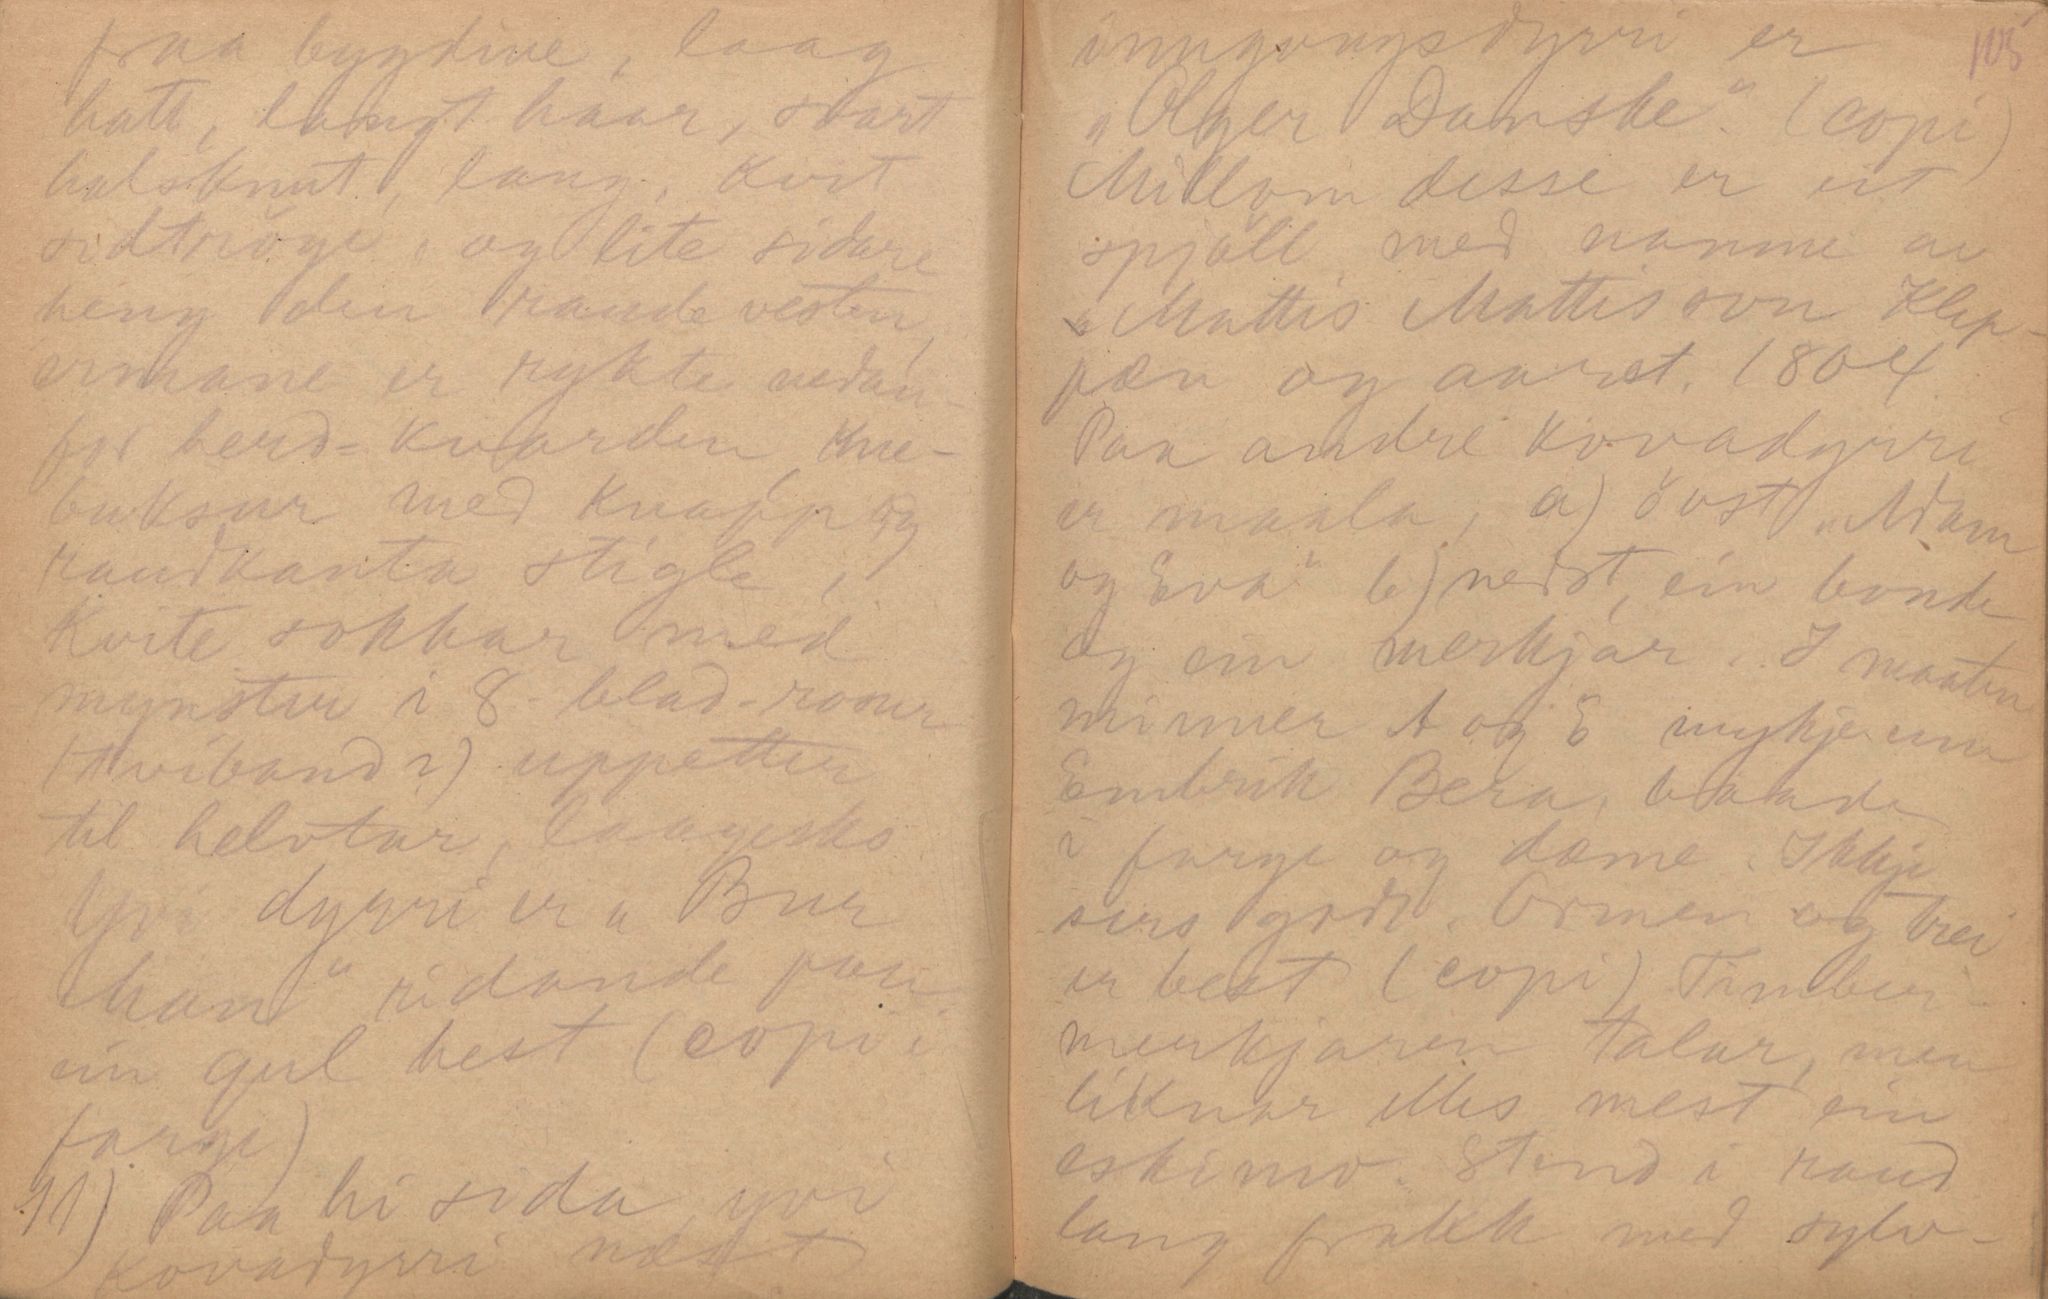 fraa bygdine, laag
hatt, langt haar, svart
halsknut, lang, kvit
sidtröye, og lite sidare
heng den raude vesten,
ermane er rykte nedan-
for herd-kvarden, kne-
buksur med knapp og
raudkanta stigle,
kvite sokkar med
mynster i 8-blad-rosur
(tviband?) uppetter
til helvtar, laagesko
Yvi dyrri er „Bur
man" ridande paa
ein gul hest (copi i
farge)
11) Paa hi sida, yvi
kovadyrri næst
105
inngongsdyrri er
„Olger Danske". (copi)
Millom desse er eit
spjöll med namne av
„Mattis Mattisson Klep-
pæn og aaret. 1804
Paa andre kovadyrri
er maala, a) övst „Adam
og Eva" b) nedst, ein bonde
og ein merkjar. I maaten
minner A og E mykje um
Embrik Bera, baade
i farge og dæme. Ikkje
sers godt. Ormen og trei
er best (copi) Timber-
merkjaren talar, men
liknar elles mest ein
eskimo. Stend i raud
lang frakk med sylv-